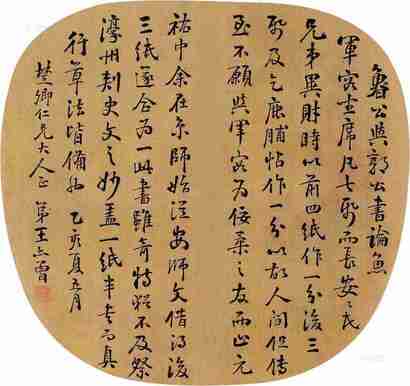 魯公與郭公書論魚
軍容坐席凡七紙而長安〻氏
兄弟異財時以前四紙作一分後三
紙及乞鹿脯帖作一分以故人間但傳
至不願與軍容為佞柔之友而止元
祐中余在京師始從安師文借得後
三紙遂合為一此書雖奇特猶不及祭
濠州刺史文之妙蓋一紙半書而真
行草法皆備也 乙亥夏五月
楚卿仁兄大人正 弟王亦曾